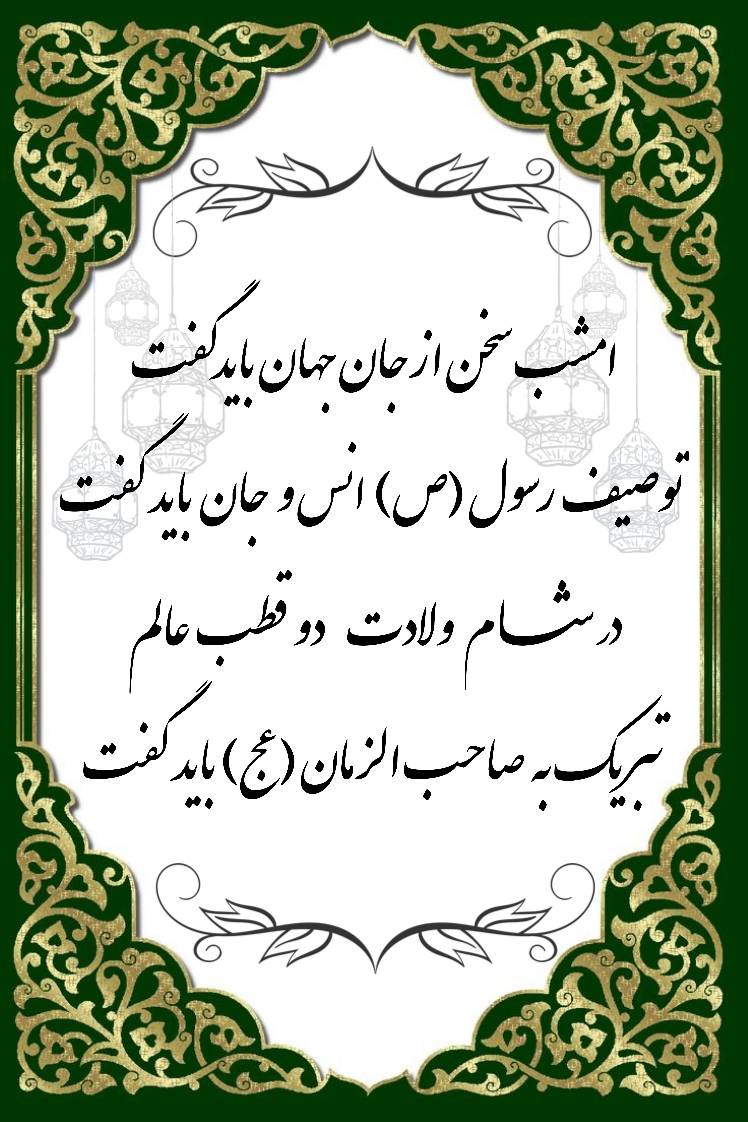 امشب سخن از جان جهان باید گفت
توصیف رسول (ص) انس و جان باید گفت
در شام ولادت دو قطب عالم
تبریک به صاحب الزمان (عج) باید گفت